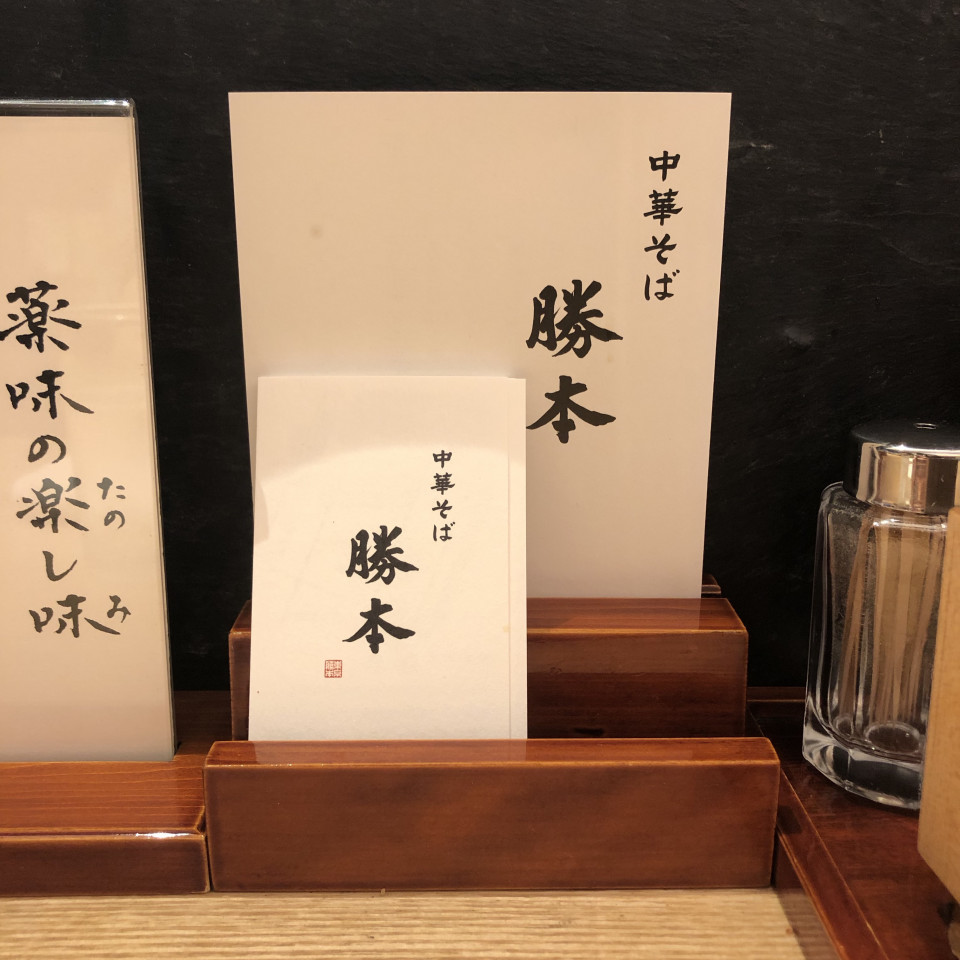 中華そば
勝本
中華そば
勝本
薬味の楽し味
たの
み